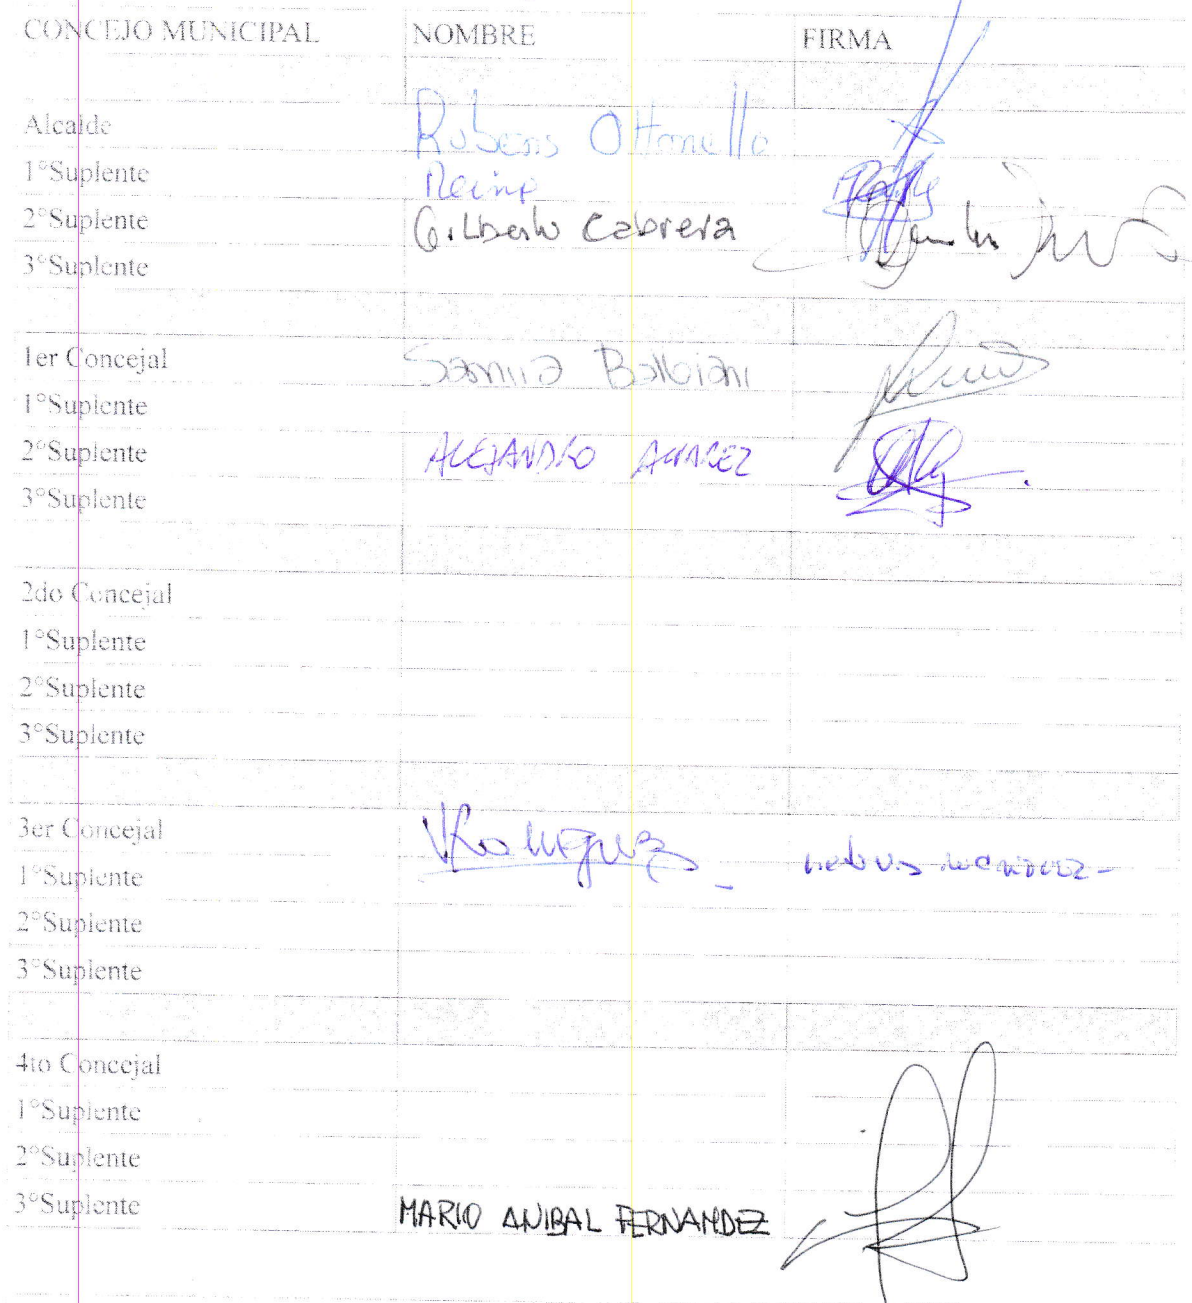 CONCEJO MUNICIPAL NOMBRE FIRMA
Alcalde Rubens Ottonello
1°Suplente Reina
2°Suplente Gilberto Cabrera
3°Suplente
1er Concejal Samira Balbiani
1°Suplente
2°Suplente ALEJANDRO ALVAREZ
3°Suplente
2do Concejal
1°Suplente
2°Suplente
3°Suplente
3er Concejal
1°Suplente
2°Suplente
3°Suplente
4to Concejal
1°Suplente
2°Suplente
3°Suplente MARIO ANIBAL FERNANDEZ